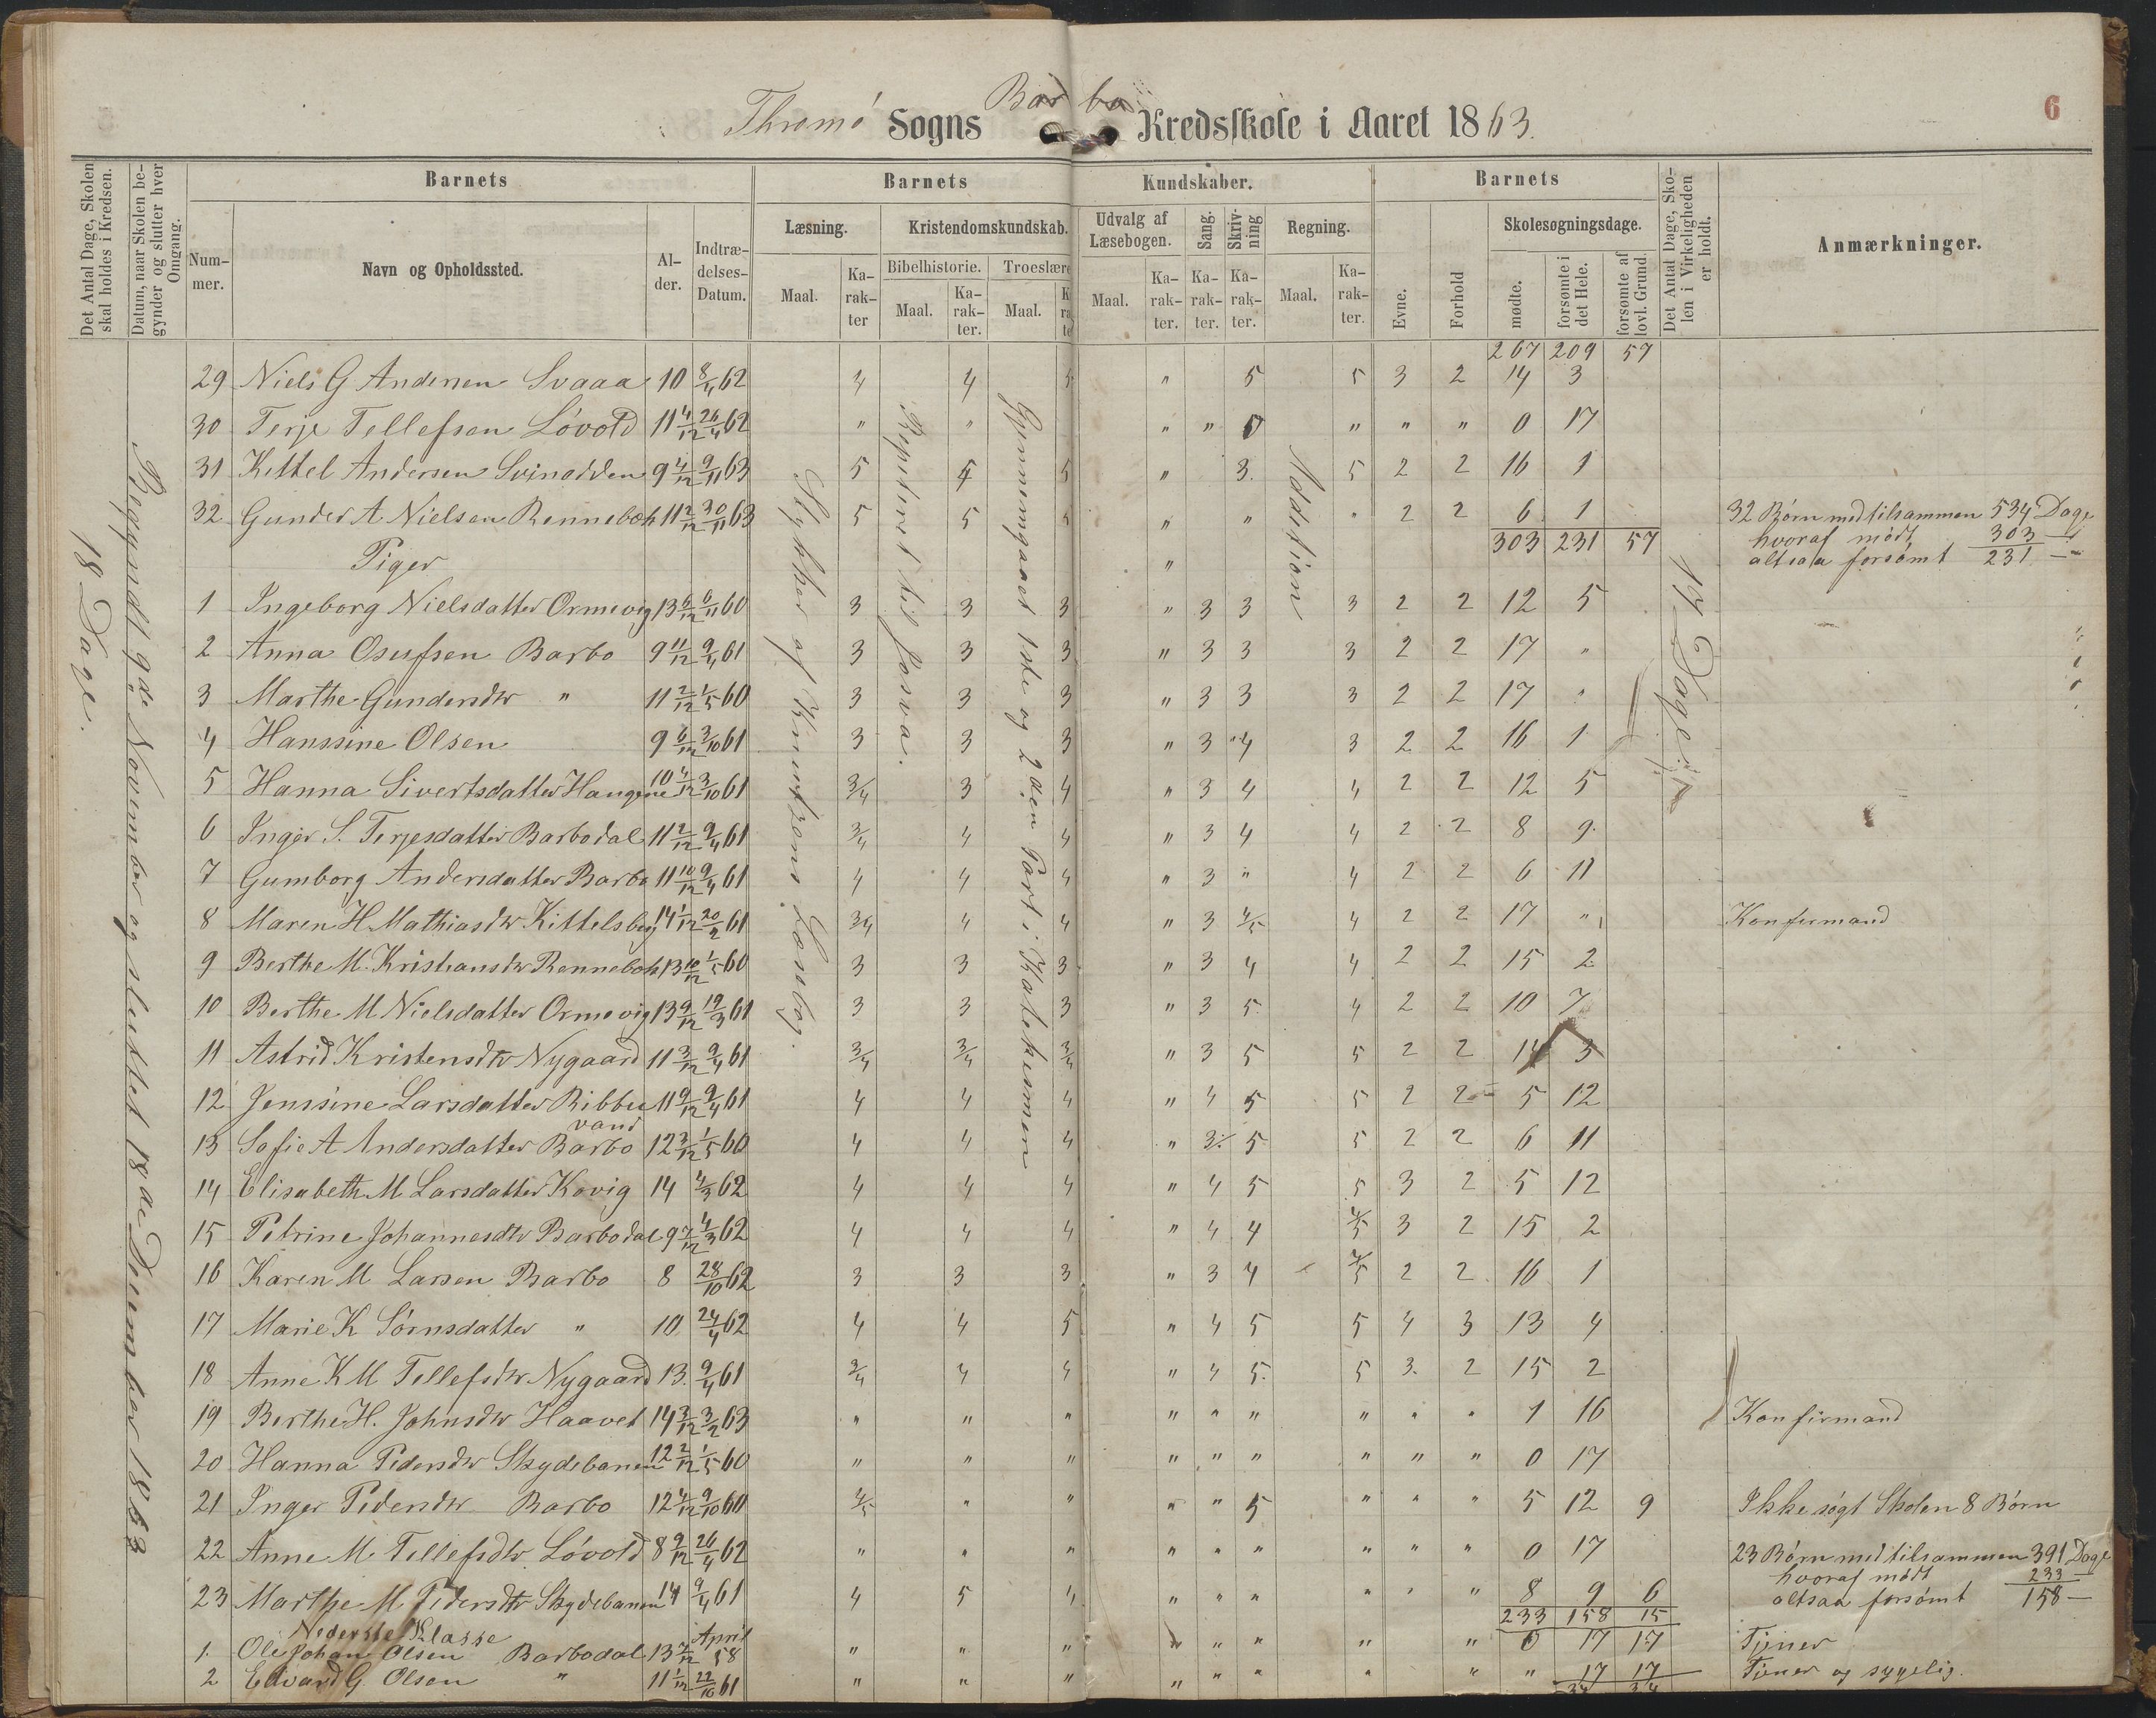 Thromø Sogns Barbo Kredsskole i Aaret 1863.
6
Det Antal Dage, Skolen skal holdes i Kredsen.
Datum, naar Skolen begynder og slutter hver Omgang.
Barnets
Nummer.
Navn og Opholdssted.
Alder.
Indtrædelses-Datum.
Barnets Kundskaber.
Læsning.
Maal.
Karakter
Kristendomskundskab.
Bibelhistorie.
Maal.
Karakter.
Troeslære
Maal.
Udvalg af Læsebogen.
Maal.
Karakter.
Sang.
Karakter.
Skrivning
Karakter.
Regning.
Maal.
Karakter.
Barnets
Evne.
Forhold
Skolesøgningsdage.
mødte.
forsømte i det Hele.
forsømte af lovl. Grund.
Det Antal Dage, Skolen i Virkeligheden er holdt.
Anmærkninger.
18 Dage.
Begyndt 9de November og sluttet 18de December 1863
Stykker af Knudtzons Læsebog.
Repeteret til Josva.
Gjennemgaaet 1ste og 2den Part i Katekismen
Addition
17 Dage
267 209 57
29 Niels G Andersen Svaaa 10 8/4 62 4 4 5 " 5 5 3 2 14 3
30 Terje Tellefsen Løvold 11 4/12 26/4 62 " " " " 0 " " " 0 17
31 Kittel Andersen Svinodden 9 4/12 9/11 63 5 4 5 " 3. 5 2 2 16 1
32 Gunder A. Nielsen Rennebæk 11 2/12 30/11 63 5 5 5 " " " 2 2 6 1 32 Børn med tilsammen 534 Dage
303 231 57 hvoraf mødt 303 —
Piger " altsaa forsømt 231 —
1 Ingeborg Nielsdatter Ormevig 13 6/12 6/11 60 3 3 3 " 3 3 3 2 2 12 5
2 Anna Osufsen Barbo 9 11/12 9/4 61 3 3 3 " 3 3 3 2 2 17 "
3 Marthe Gundersdtr " 11 2/12 1/5 60 3 3 3 " 3 3 3 2 2 17 "
4 Hanssine Olsen 9 6/12 3/10 61 3 3 3 " 3 4 3 2 2 16 1
5 Hanna Sivertsdatter Haugene 10 4/12 3/10 61 3/4 3 4 " 3 4 4 2 2 12 5
6 Inger S. Terjesdatter Barbodal 11 2/12 9/4 61 3/4 4 4 " 3 4 4 2 2 8 9
7 Gumborg Andersdatter Barbo 11 10/12 9/4 61 4 4 4 " 3 " 4 2 2 6 11
8 Maren H Mathiasdtr Kittelsbug 14 1/12 20/2 61 3/4 4 4 " 3 4/5 4 2 2 17 " Konfirmand
9 Berthe M. Kristiansdtr Rennebæk 13 10/12 1/5 60 3 3 3 " 3 4 4 2 2 15 2
10 Berthe M Nielsdatter Ormevig 13 9/12 19/3 61 3 3 3 " 3 5 4 2 2 10 7
11 Astrid Kristensdtr Nygaard 11 3/12 9/4 61 3/4 3/4 3/4 " 3 5 5 2 2 14 3
12 Jenssine Larsdatter Ribbervand 11 9/12 9/4 61 4 4 4 " 4 5 5 2 2 5 12
13 Sofie A Andersdatter Barbo 12 3/12 1/5 60 4 4 4 " 3/. 5 5 2 2 6 11
14 Elisabeth M Larsdatter Kovig 14 4/3 62 4 4 4 " 4 5 5 3 2 5 12
15 Petrine Johannesdtr Barbodal 9 7/12 4/3 62 4 4 4 " 4 4 4/5 3 2 15 2
16 Karen M Larsen Barbo 8 28/10 62 3 3 3 " 3 4 4/5 2 2 16 1
17 Marie K Sørnsdatter " 10 24/4 62 4 4 5 " 4 5 5 4 3 13 4
18 Anne K M Tellefsdtr Nygaard 13. 9/4 61 3/4 4 4 " 4 5. 5 3. 2 15 2
19 Berthe H. Johnsdtr Haavet 14 2/12 3/2 63 " " " " " " " " " 1 16 Konfirmand
20 Hanna Pedersdtr Skydebanen 12 2/12 1/5 60 " " " " " " " " " 0 17
21 Inger Pedersdtr Barbo 12 4/12 9/10 60 4/5 " " " " 5 " " " 5 12 9 Ikke søgt Skolen 8 Børn
22 Anne M. Tellefsdtr Løvold 8 9/12 26/4 62 " " " " " " " " " 0 17 23 Børn med tilsammen 391 Dage
hvoraf mødt 233 —
23 Marthe M. Pedersdtr Skydebanen 14 9/4 61 4 5 4 " " " " " " 8 9 6 altsaa forsømt 158 —
233 158 15
Nederste Klasse
1. Ole Johan Olsen Barbodal 13 7/12 April 58 " " " " " " " 0 17 17 Tjener
2 Edvard G. Olsen " 11 1/12 22/10 61 " " " " " " " " " 17 17 Tjener og sygelig.
34 34